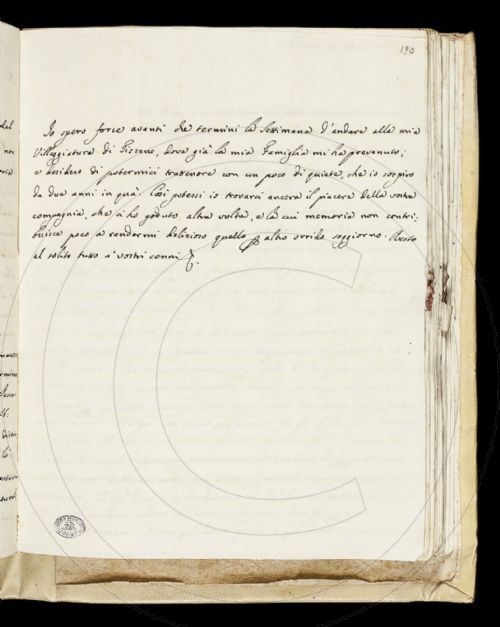 190
Io spero forze avanti che termini la Settimana d'andare alla mia
Villeggiatura di Fizzano, dove già la mia Famiglia mi ha prevenuto;
e desidero di potermici trattenere con un poco di quiete, che io sospiro
da due anni in quà. Così potessi io trovarci ancora il piacere della vostra
compagnia, che vi hò goduto altra volta, e la cui memoria non contri-
buisce poco a rendermi delizioso quello altro orrido soggiorno. Resto
al solito tutto a' vostri cenni